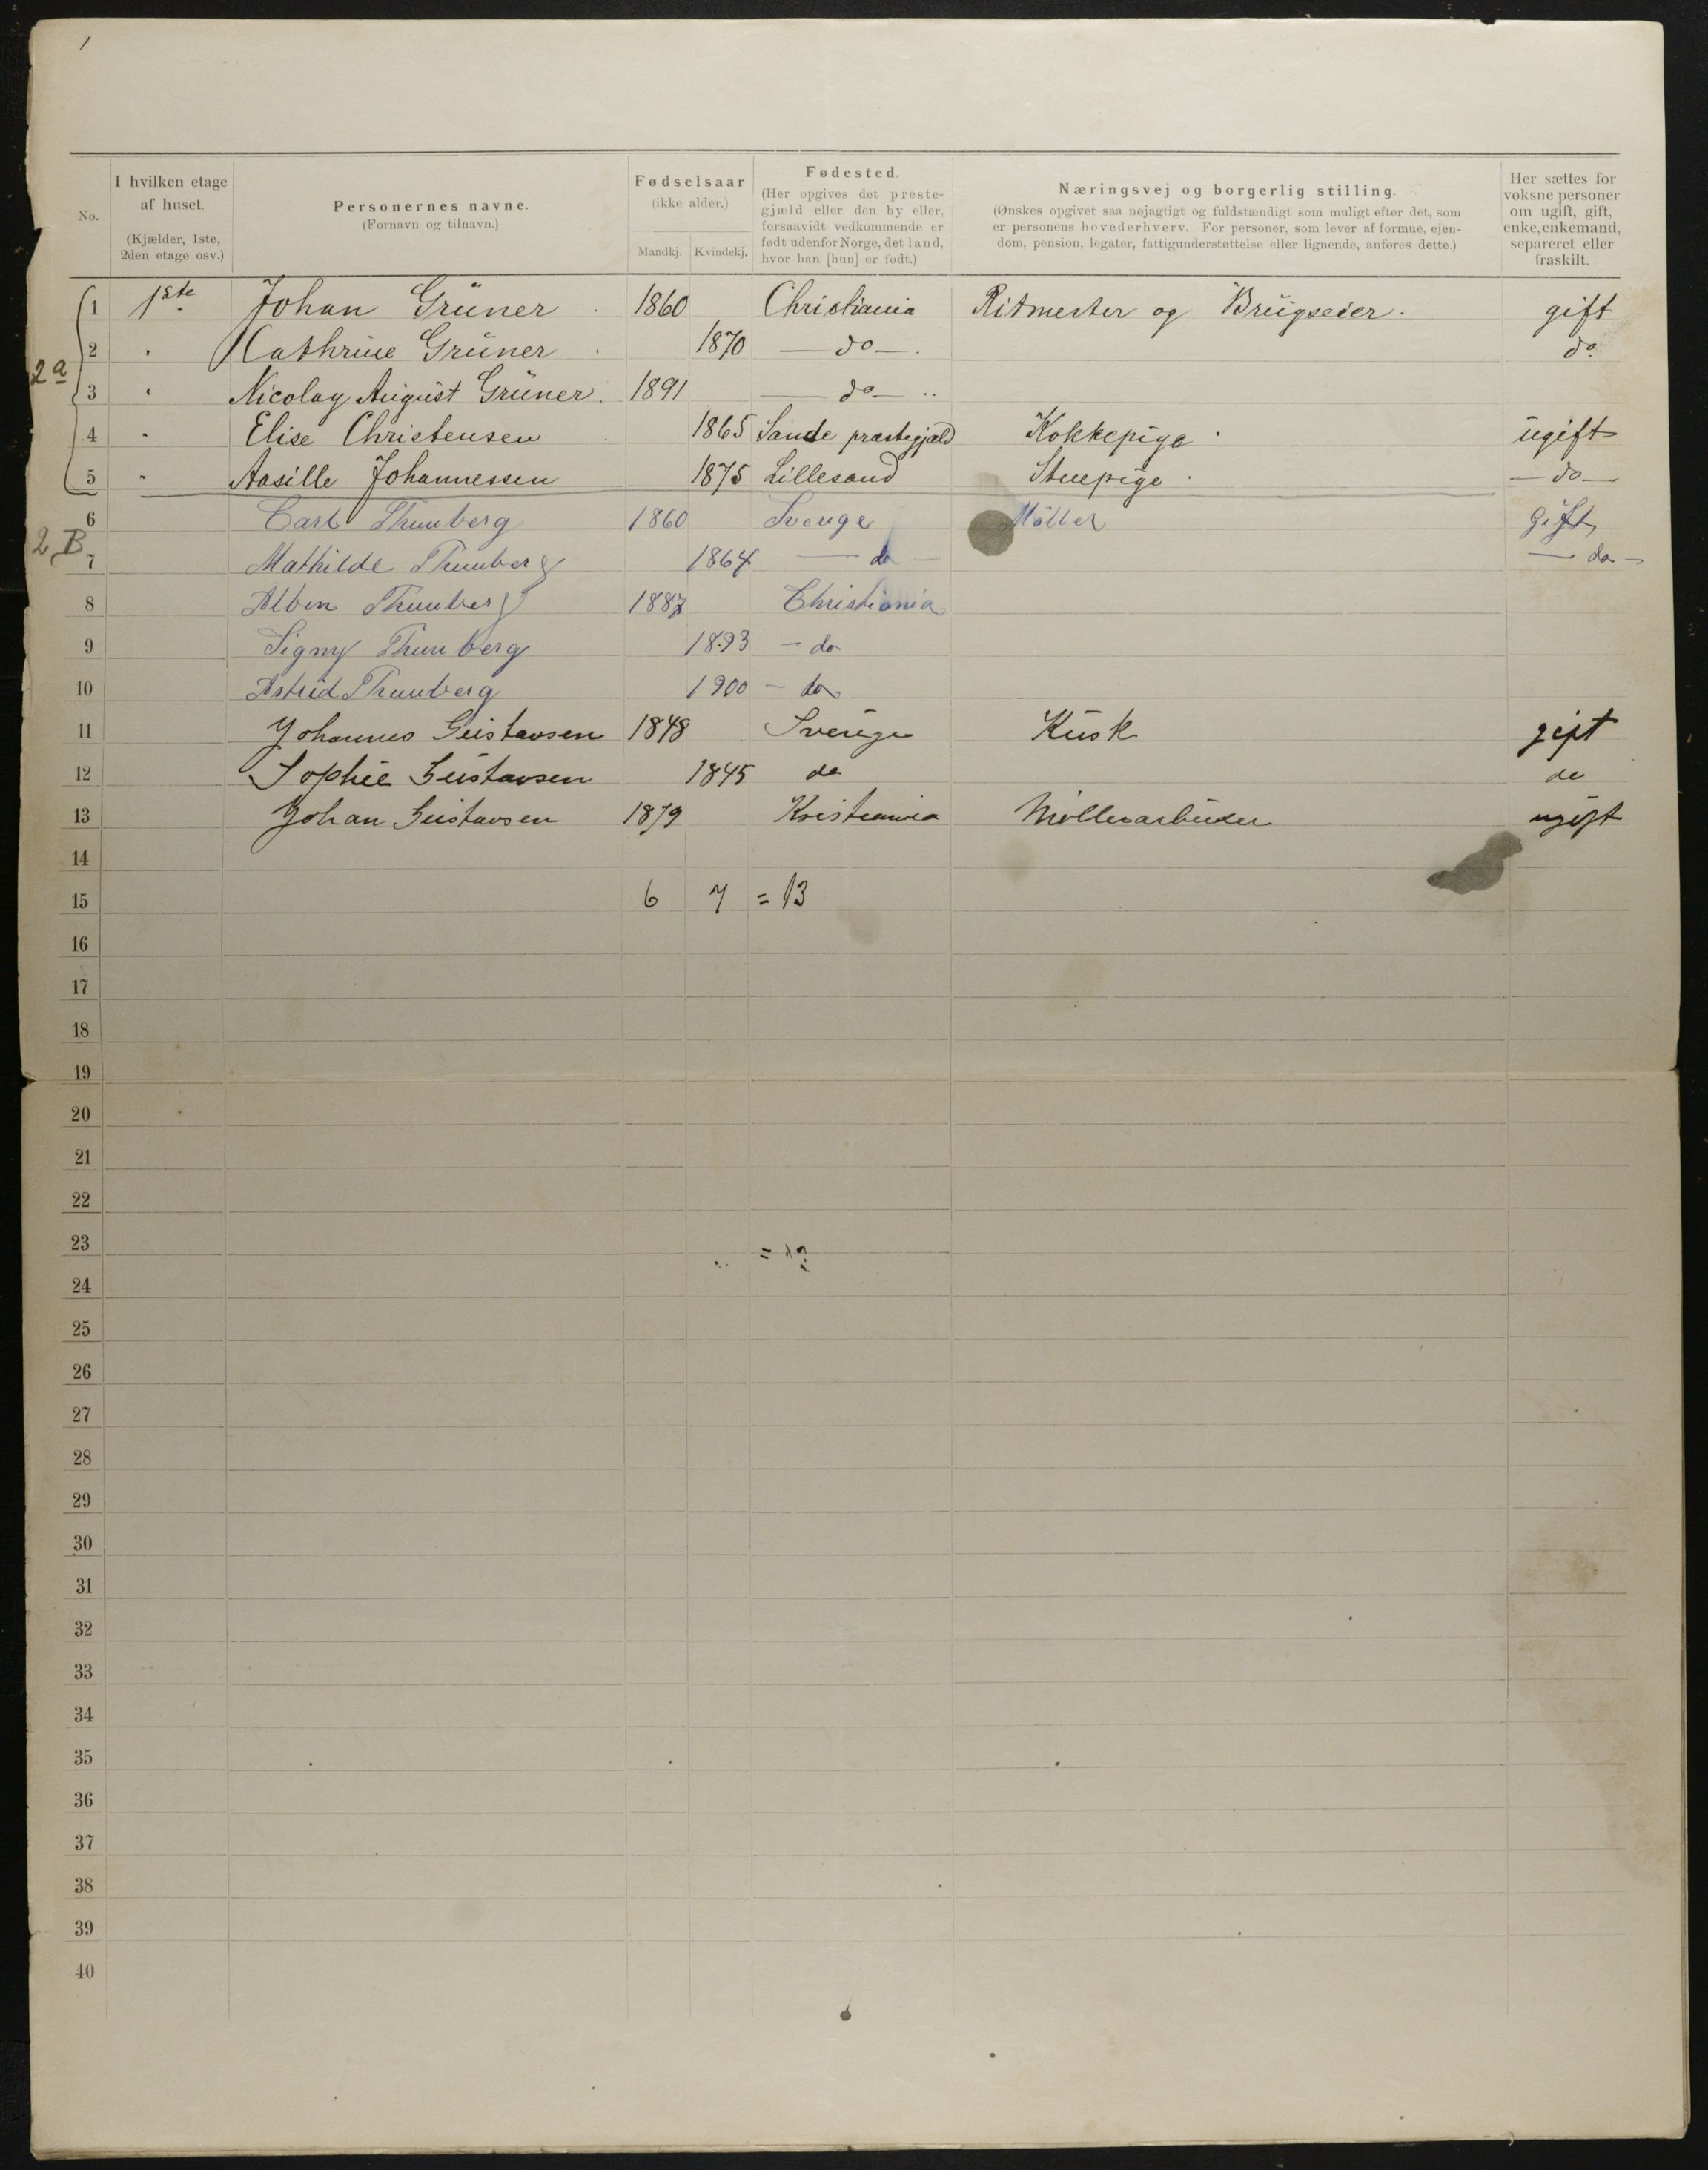 1
No.
I hvilken etage af huset. (Kjælder, 1ste, 2den etage osv.)
Personernes navne. (Fornavn og tilnavn.)
Fødselsaar (ikke alder.) Mandkj. Kvindekj.
Fødested. (Her opgives det prestegjæld eller den by eller, forsaavidt vedkommende er født udenfor Norge, det land, hvor han [hun] er født.)
Næringsvej og borgerlig stilling. (Ønskes opgivet saa nøjagtigt og fuldstændigt som muligt efter det, som er personens hovederhverv. For personer, som lever af formue, ejendom, pension, legater, fattigunderstøttelse eller lignende, anføres dette.)
Her sættes for voksne personer om ugift, gift, enke, enkemand, separeret eller fraskilt.
1 1ste Johan Grüner 1860 Christiania Ritmester og Brugseier. gift
2 " Cathrine Grüner 1870 — do — do
2a
3 " Nicolay August Grüner 1891 — do —
4 " Elise Christensen 1865 Sande præstegjæld Kokkepige ugift
5 " Aasille Johannessen 1875 Lillesand Stuepige — do —
6 Carl Thunberg 1860 Sverige Möller gift
2 B
7 Mathilde Thunberg 1864 — do — — do —
8 Albin Thunberg 1887 Christiania
9 Signy Thunberg 1893 — do
10 Astrid Thunberg 1900 — do
11 Johannes Gustavsen 1848 Sverige Kusk gift
12 Sophie Gustavsen 1845 do do
13 Johan Gustavsen 1879 Kristiania Møllerarbeider ugift
14
15 6 7 = 13
16
17
18
19
20
21
22
23
24
25
26
27
28
29
30
31
32
33
34
35
36
37
38
39
40